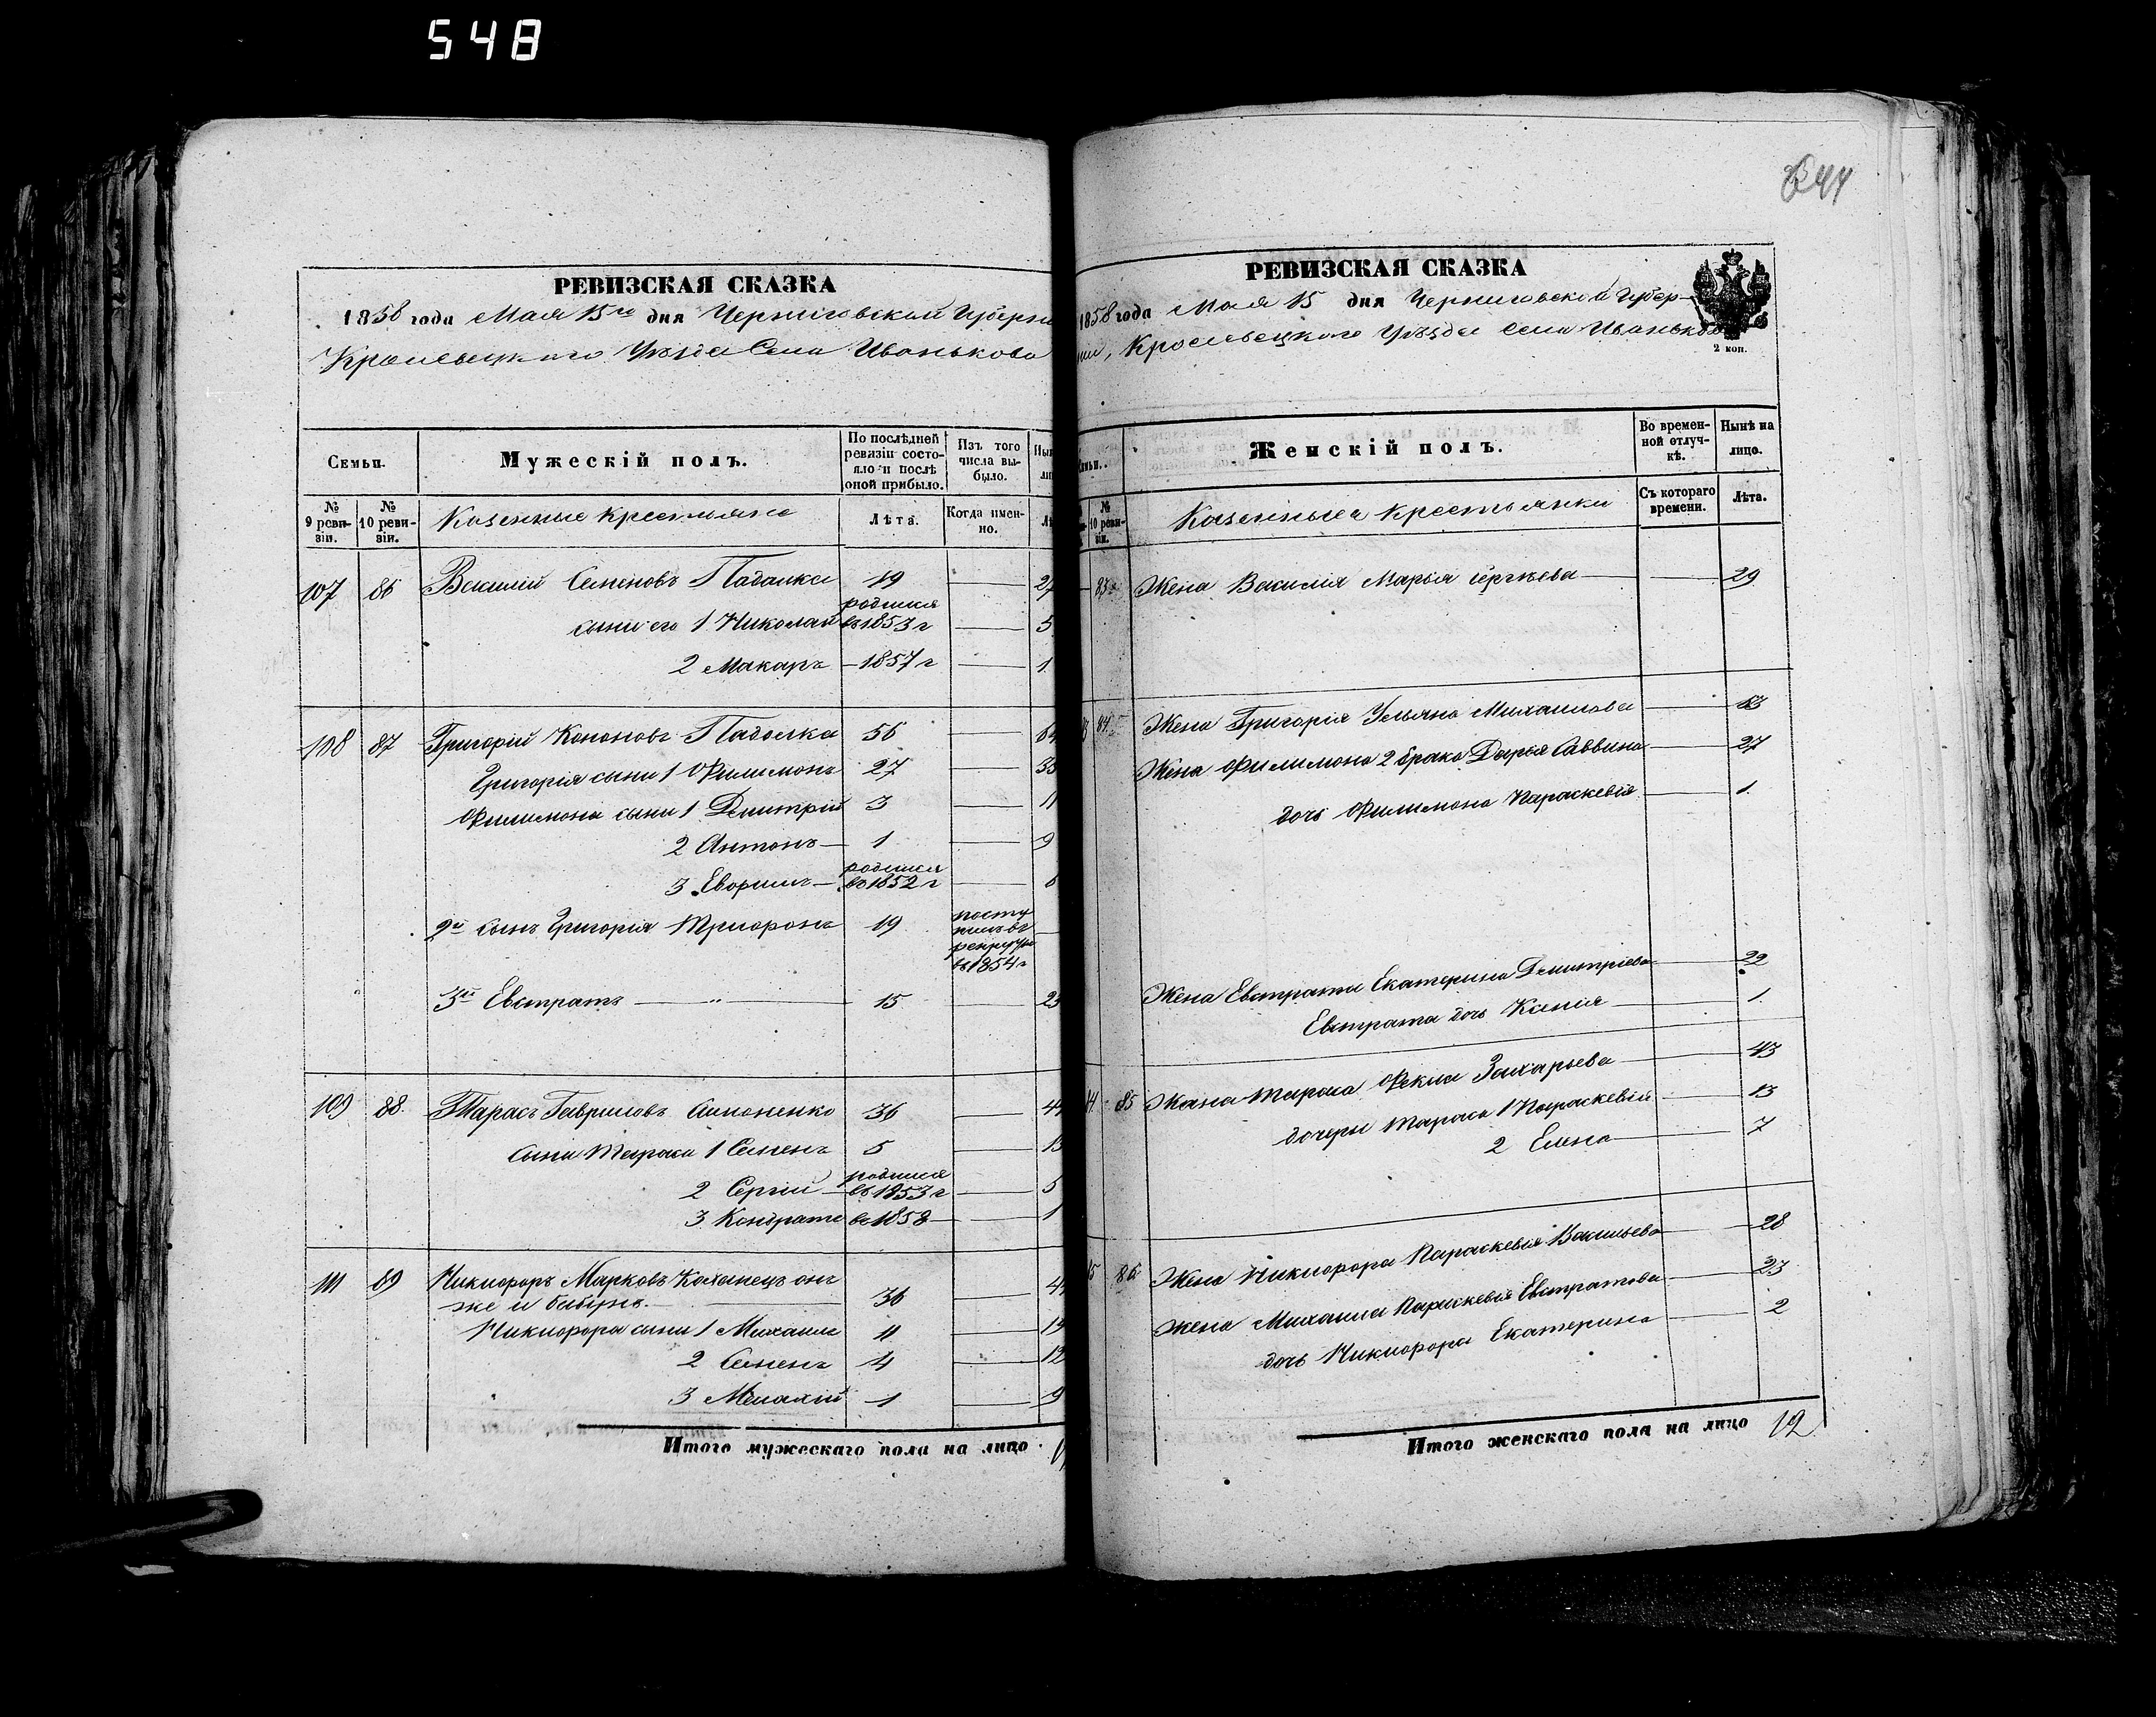 548
РЕВИЗСКАЯ СКАЗКА
1858 года Мая 15го дня Черниговской Губерні
Кролевецкого Уѣзда Села Иванькова
Семьи.
Мужескій полъ.
По послѣдней ревизіи состояло и послѣ оной прибыло.
Изъ того числа выбыло.
№ 9 ревизіи.
№ 10 ревизіи.
Казенные крестьяне
Лѣта.
Когда именно.
107 86 Василий Семеновъ Падалка 19 27
сыни его 1 Николай родился въ 1853 г 5
2 Макаръ 1857 г 1
108 87 Григорий Кононовъ Падалка 56 64
Григорія сыни 1 Филимонъ 27 35
Филимона сыни 1 Дмитрій 3 11
2 Антонъ 1 9
3 родился въ 1852 г 6
2й сынъ Григорія Трифонъ 19 поступилъ въ рекруты въ 1854 г
3й Евстратъ 15 23
109 88 Тарасъ Гавриловъ 36 44
сыни Тараса 1 Семенъ 5 13
2 Сергій родился въ 1853 г 5
3 Кондратъ въ 1858 1
111 89 Никифоръ Марковъ Коханецъ онъ же и 36
Никифора сыни 1 Михаилъ 11 19
2 Семенъ 4 12
3 1 9
Итого мужескаго пола на лицо
644
РЕВИЗСКАЯ СКАЗКА
1858 года Мая 15 дня Черниговской Губер-
ніи, Кролевецкого Уѣзда Села Иванькова
2 коп.
Женскій полъ.
Во временной отлучкѣ.
Нынѣ на лицо.
№ 10 ревизіи.
Казенныея крестьянки
Съ котораго времени.
Лѣта.
Жена Василія Марья Сергѣева 29
84 Жена Григорія Ульяна Михаилова 63
Жена Филимона 2 брака Дарья Саввина 27
дочь Филимона Параскевія 1
Жена Евстрата Екатерина Дмитріева 22
Евстрата дочь Ксенія 1
85 Жена Тараса Фекла Захарьева 43
дочери Тараса 1 Параскевія 13
2 Елена 7
86 Жена Никифора Параскевія Васильева 28
Жена Михаила Параскевія Евстратова 23
дочь Никифора Екатерина 2
Итого женскаго пола на лицо 12